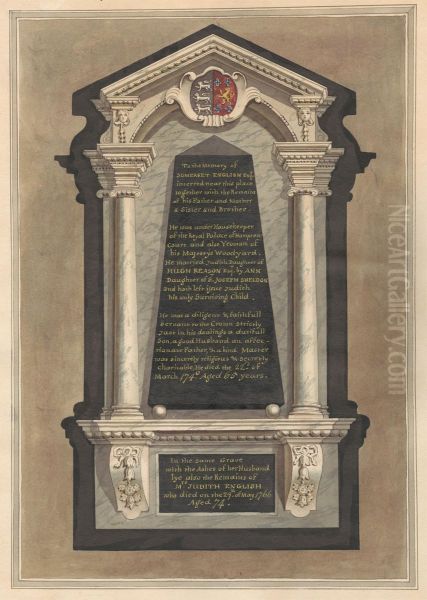 To the Memory of
SOMERSET ENGLISH Esq.
interred near this place
together with the Remains
of his Father and Mother
a Sister and Brother.
He was under Housekeeper
of the Royal Palace of Hampton
Court and also Yeoman of
his Majestys Woodyard.
He married Judith Daughter of
HUGH REASON Esq. by ANN
Daughter of Sr. JOSEPH SHELDON
and hath left issue Judith
his only Surviving Child.
He was a diligent & faithfull
Servant to the Crown Strictly
Just in his dealings a dutifull
Son, a good Husband an affec-
tionate Father, & a kind Master
was sincerely religious & Secretly
Charitable. He died the 22d. of
March 174 Aged 65 years.
In the same Grave
with the Ashes of her Husband
lye also the Remains of
Mrs. JUDITH ENGLISH
who died on the 29th. of May 1766
Aged 74.
TheGallerist.Art